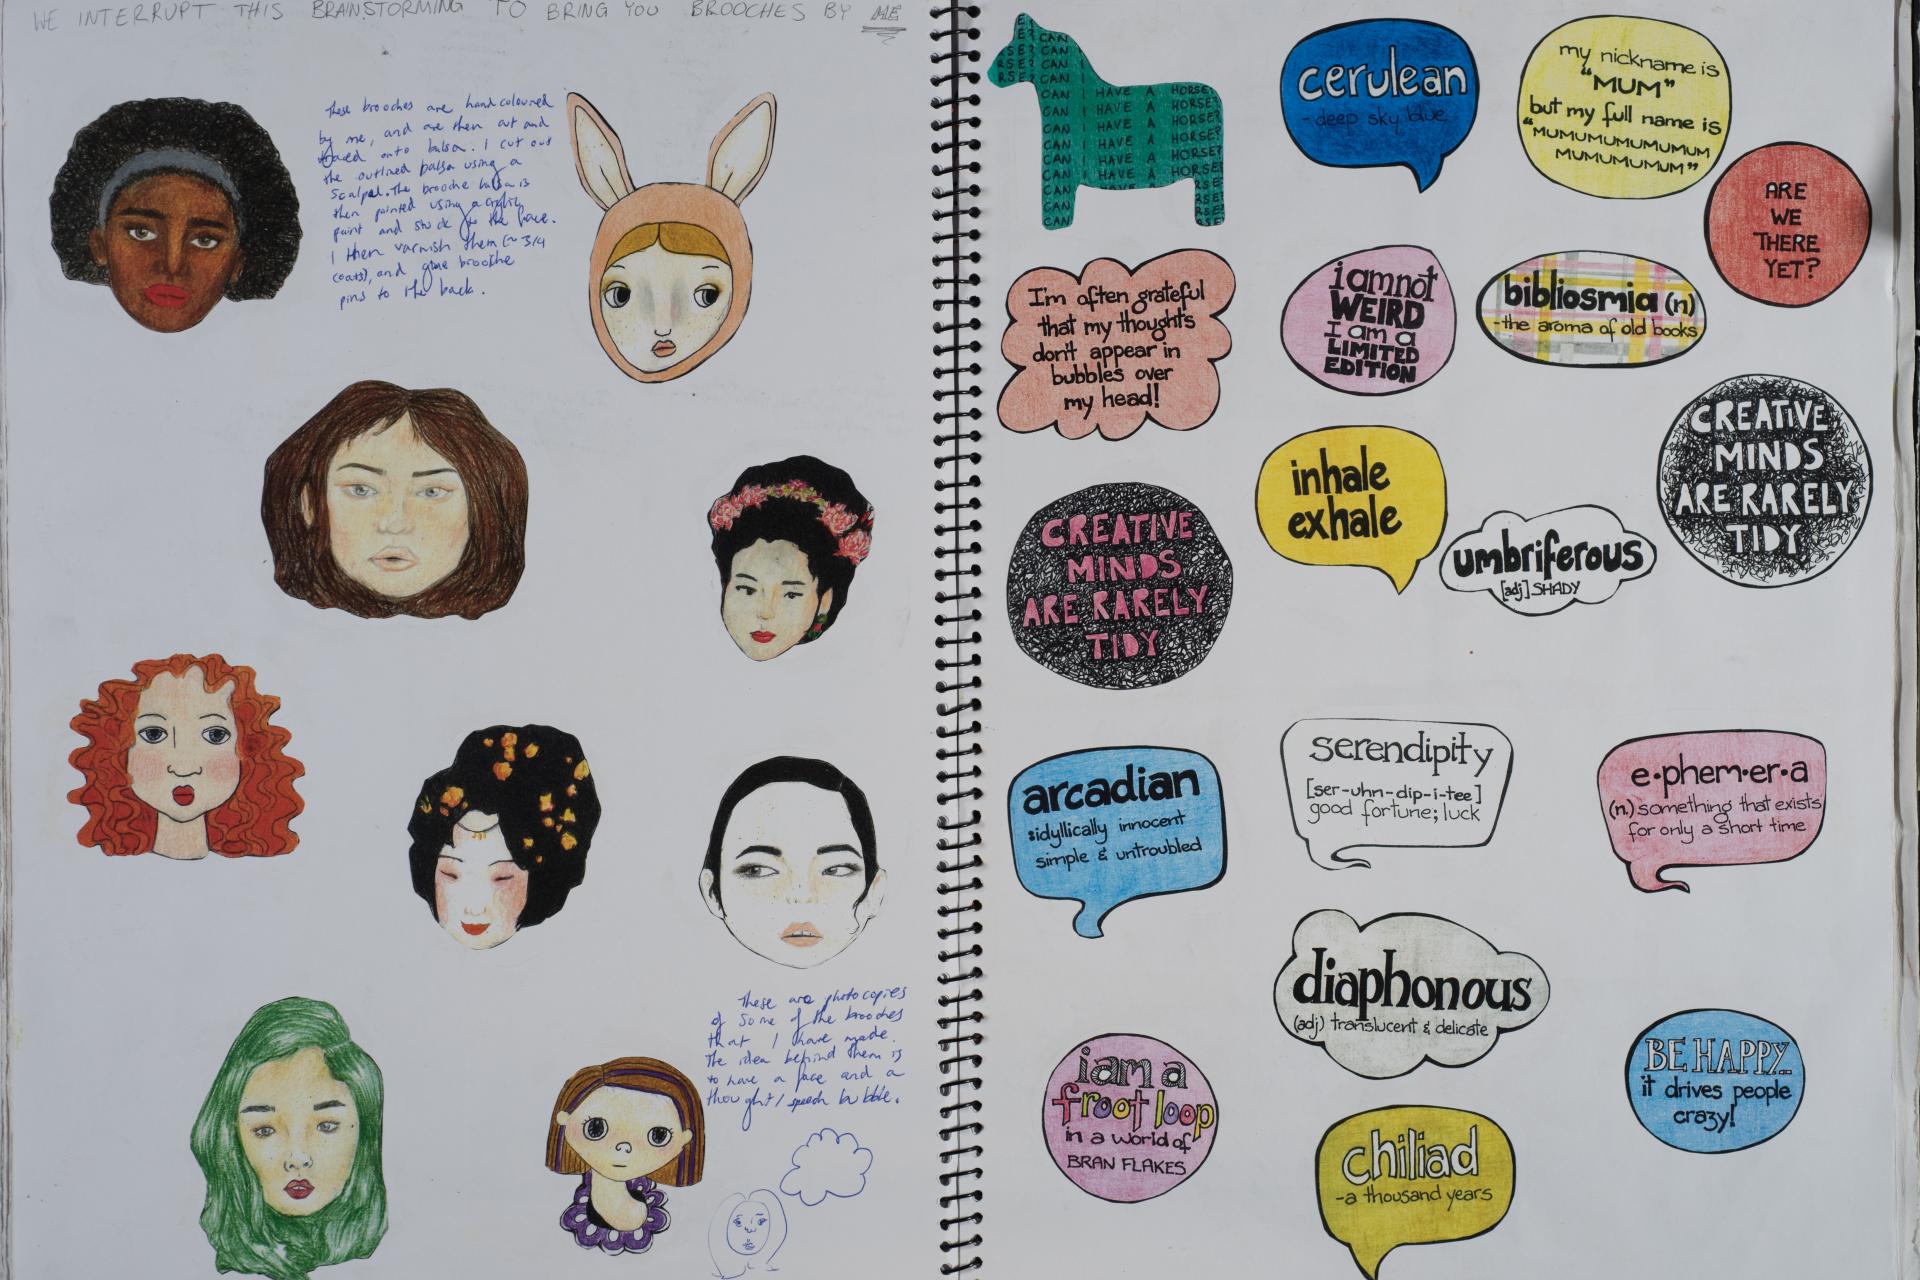 WE INTERRUPT THIS BRAINSTORMING TO BRING YOU BROOCHES BY ME
These brooches are hand coloured
by me, and are then cut and
traced onto balsa. I cut out
the outlined balsa using a
scalpel. The brooche balsa is
then painted using acrylic
paint and stuck to the face.
I then varnish them (~ 3/4
coats), and glue brooche
pins to the back.
These are photocopies
of some of the brooches
that I have made.
The idea behind them is
to have a face and a
thought/speech bubble.
E?
E? CAN
SE? CAN
RSE? CAN I
RSE? CAN I HAVE A HORSE?
CAN I HAVE A HORSE?
CAN I HAVE A HORSE?
CAN I HAVE A HORSE?
CAN I HAVE A HORSE?
CAN I HAVE A HORSE?
CAN I HAVE A HORSE?
CAN HAVE A HORSE?
CAN RSE?
CAN RSE?
cerulean
- deep sky blue
my nickname is
"MUM"
but my full name is
"MUMUMUMUMUM
MUMUMUMUM"
ARE
WE
THERE
YET?
I'm often grateful
that my thoughts
don't appear in
bubbles over
my head!
i am not
WEIRD
I am a
LIMITED
EDITION
bibliosmia (n)
-the aroma of old books
CREATIVE
MINDS
ARE RARELY
TIDY
inhale
exhale
umbriferous
[adj] SHADY
CREATIVE
MINDS
ARE RARELY
TIDY
arcadian
:idyllically innocent
simple & untroubled
serendipity
[ser-uhn-dip-i-tee]
good fortune; luck
e•phem•er•a
(n.) something that exists
for only a short time
diaphonous
(adj) translucent & delicate
i am a
froot loop
in a world of
BRAN FLAKES
BE HAPPY...
it drives people
crazy!
chiliad
-a thousand years